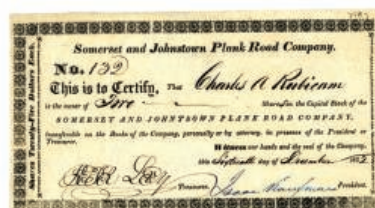 Somerset and Johnstown Plank Road Company.
No. 132
This is to Certify, That Charles A Rubicam
is the owner of Two Shares in the Capital Stock of the
SOMERSET AND JOHNSTOWN PLANK ROAD COMPANY,
transferable on the Books of the Company, personally or by attorney, in presence of the President or
Treasurer.
Witness our hands and the seal of the Company,
this day of December
Treasurer, Isaac Kaufman President.
Shares Twenty-Five Dollars Each.